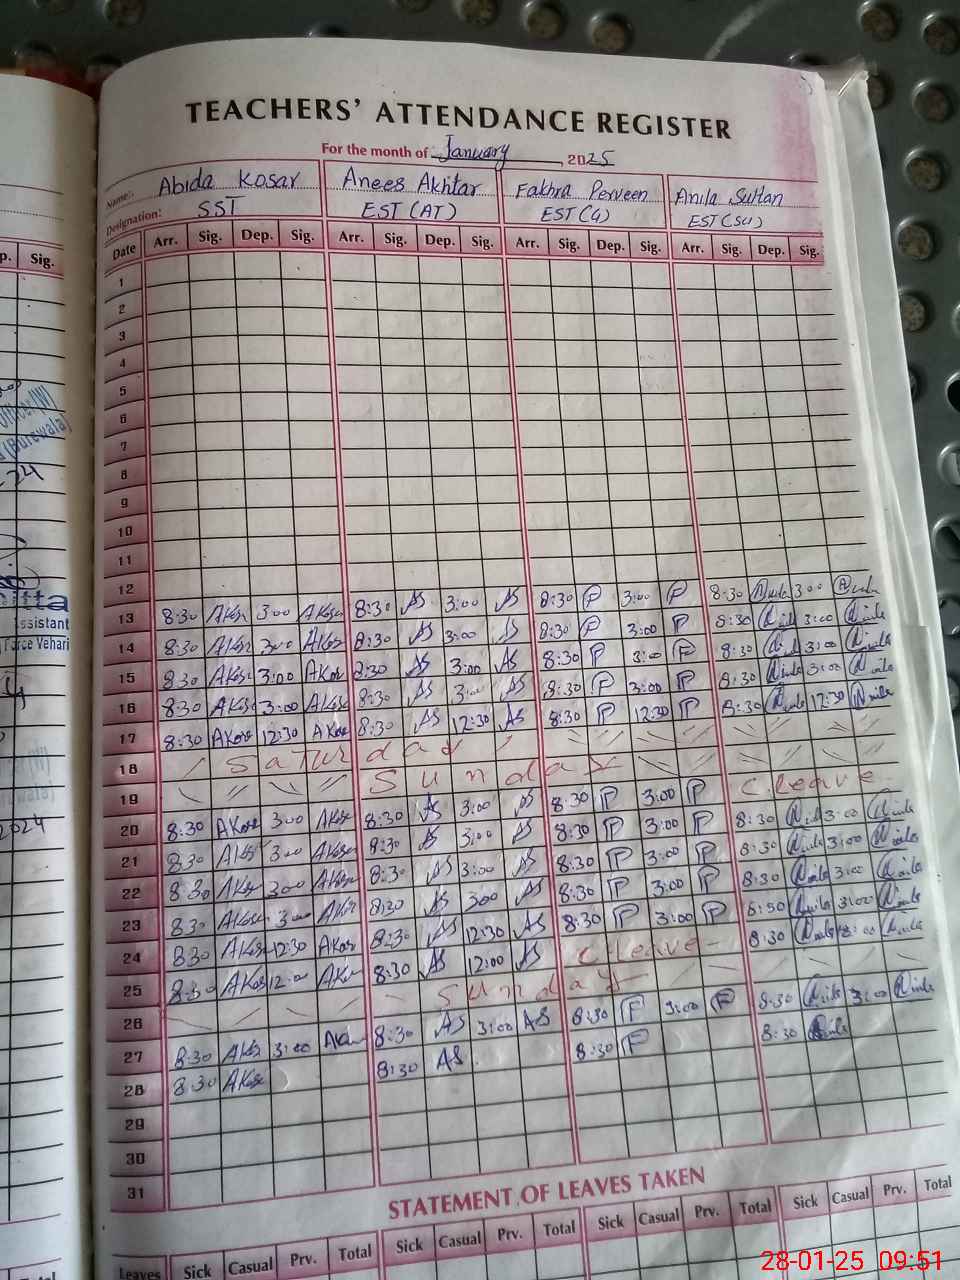 TEACHERS' ATTENDANCE REGISTER
For the month of January, 2025
Name:- Abida Kosar Anees Akhtar Fakhra Perveen Anila Sultan
Designation: SST EST (AT) EST (G) EST (SU)
p. Sig.
Date Arr. Sig. Dep. Sig. Arr. Sig. Dep. Sig. Arr. Sig. Dep. Sig. Arr. Sig. Dep. Sig.
1
2
3
4
5
6
7
(Burewala)
8
9
10
11
12
13 8:30 AKosr 3:00 AKosr 8:30 AS 3:00 AS 8:30 P 3:00 P 8:30 Anila 3:00 Anila
itta
ssistant
Force Vehari
14 8:30 AKosr 3:00 AKosr 8:30 AS 3:00 AS 8:30 P 3:00 P 8:30 Anila 3:00 Anila
15 8:30 AKosr 3:00 AKosr 8:30 AS 3:00 AS 8:30 P 3:00 P 8:30 Anila 3:00 Anila
16 8:30 AKosr 3:00 AKosr 8:30 AS 3:00 AS 8:30 P 3:00 P 8:30 Anila 3:00 Anila
17 8:30 AKosr 12:30 AKosr 8:30 AS 12:30 AS 8:30 P 12:30 P 8:30 Anila 12:30 Anila
18 Saturday
19 Sunday
2024
20 8:30 AKosr 3:00 AKosr 8:30 AS 3:00 AS 8:30 P 3:00 P C.Leave
21 8:30 AKosr 3:00 AKosr 8:30 AS 3:00 AS 8:30 P 3:00 P 8:30 Anila 3:00 Anila
22 8:30 AKosr 3:00 AKosr 8:30 AS 3:00 AS 8:30 P 3:00 P 8:30 Anila 3:00 Anila
23 8:30 AKosr 3:00 AKosr 8:30 AS 3:00 AS 8:30 P 3:00 P 8:30 Anila 3:00 Anila
24 8:30 AKosr 12:30 AKosr 8:30 AS 12:30 AS 8:30 P 3:00 P 8:30 Anila 3:00 Anila
25 8:30 AKosr 12:00 AKosr 8:30 AS 12:00 AS C.Leave 8:30 Anila Anila
26 Sunday
27 8:30 AKosr 3:00 AKosr 8:30 AS 3:00 AS 8:30 F 3:00 F 8:30 Anila 3:00 Anila
28 8:30 AKosr 8:30 AS 8:30 F 8:30 Anila
29
30
31
STATEMENT OF LEAVES TAKEN
Leaves Sick Casual Prv. Total Sick Casual Prv. Total Sick Casual Prv. Total Sick Casual Prv. Total
Total
28-01-25 09:51